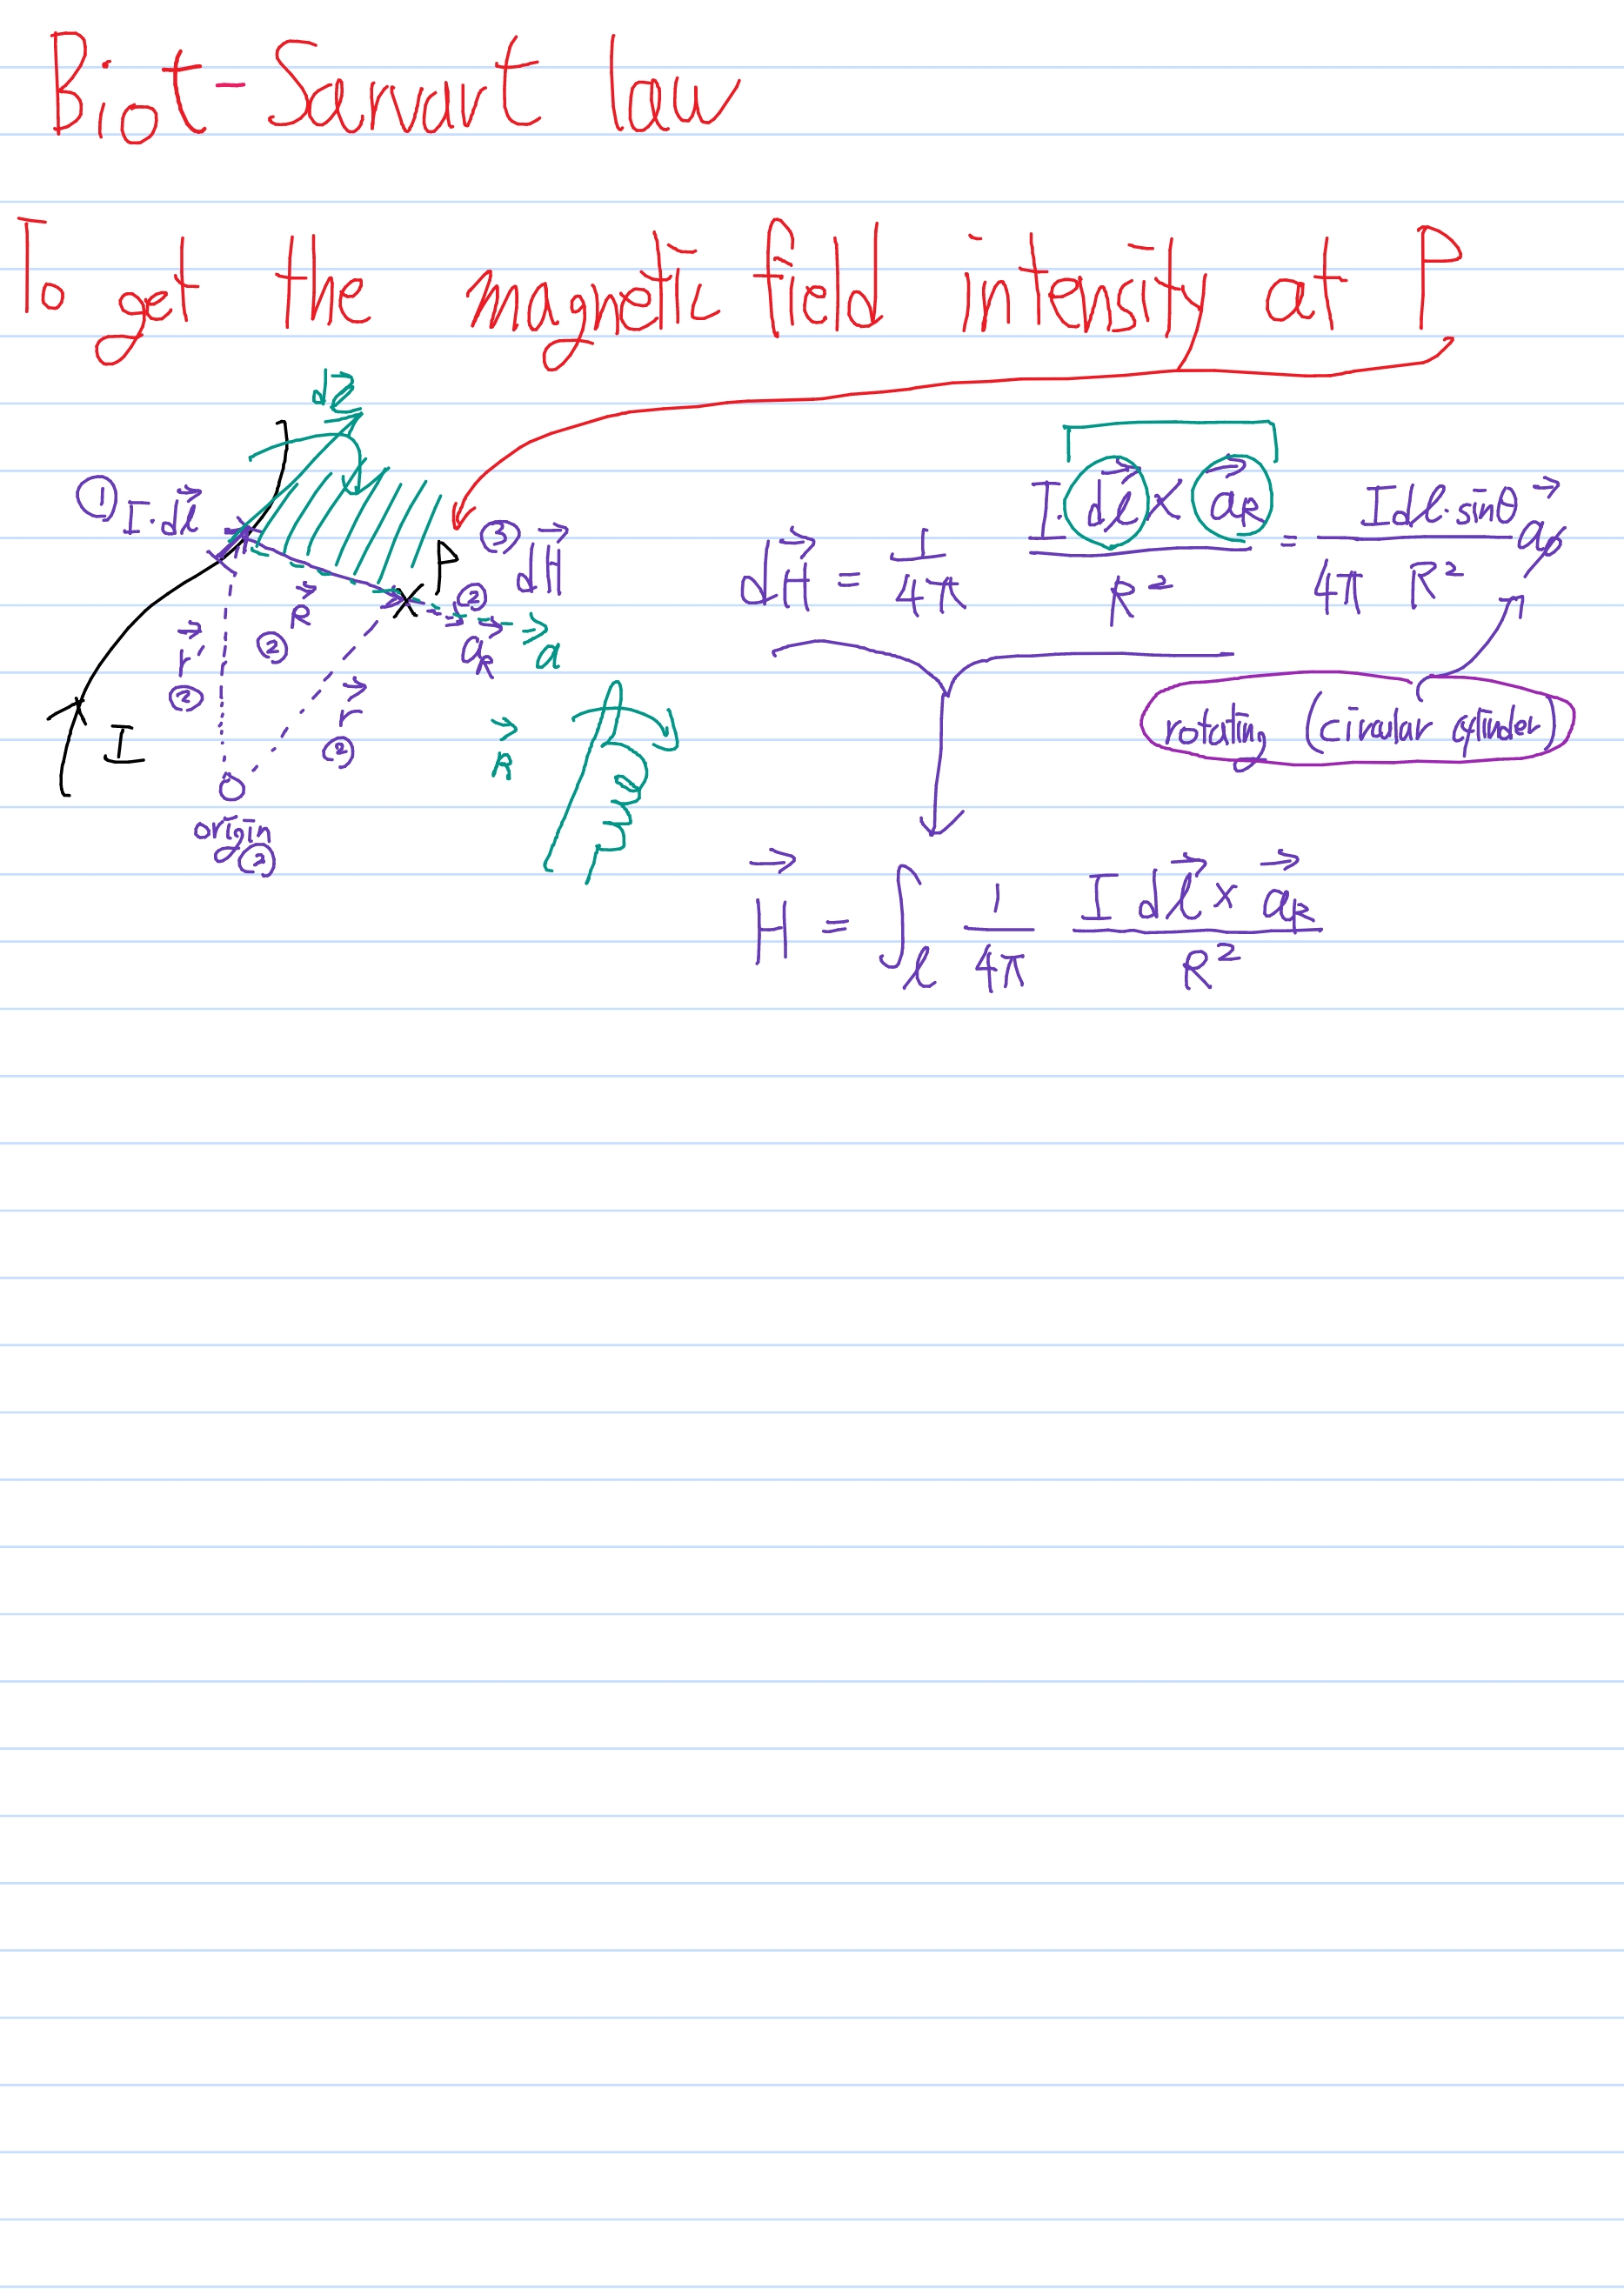 Biot-Savart law
To get the magnetic field intensity at P
dl⃗
① I·dl⃗
P ③ dH⃗
R⃗ ②
② a⃗R a⃗
r⃗' ②
r⃗ ②
I
R⃗
origin ②
dH⃗ = 1/4π I·dl⃗ × a⃗R / R² = Idl·sinθ / 4π R² a⃗ϕ
rotating (circular cylinder)
H⃗ = ∫l 1/4π I dl⃗ × a⃗R / R²